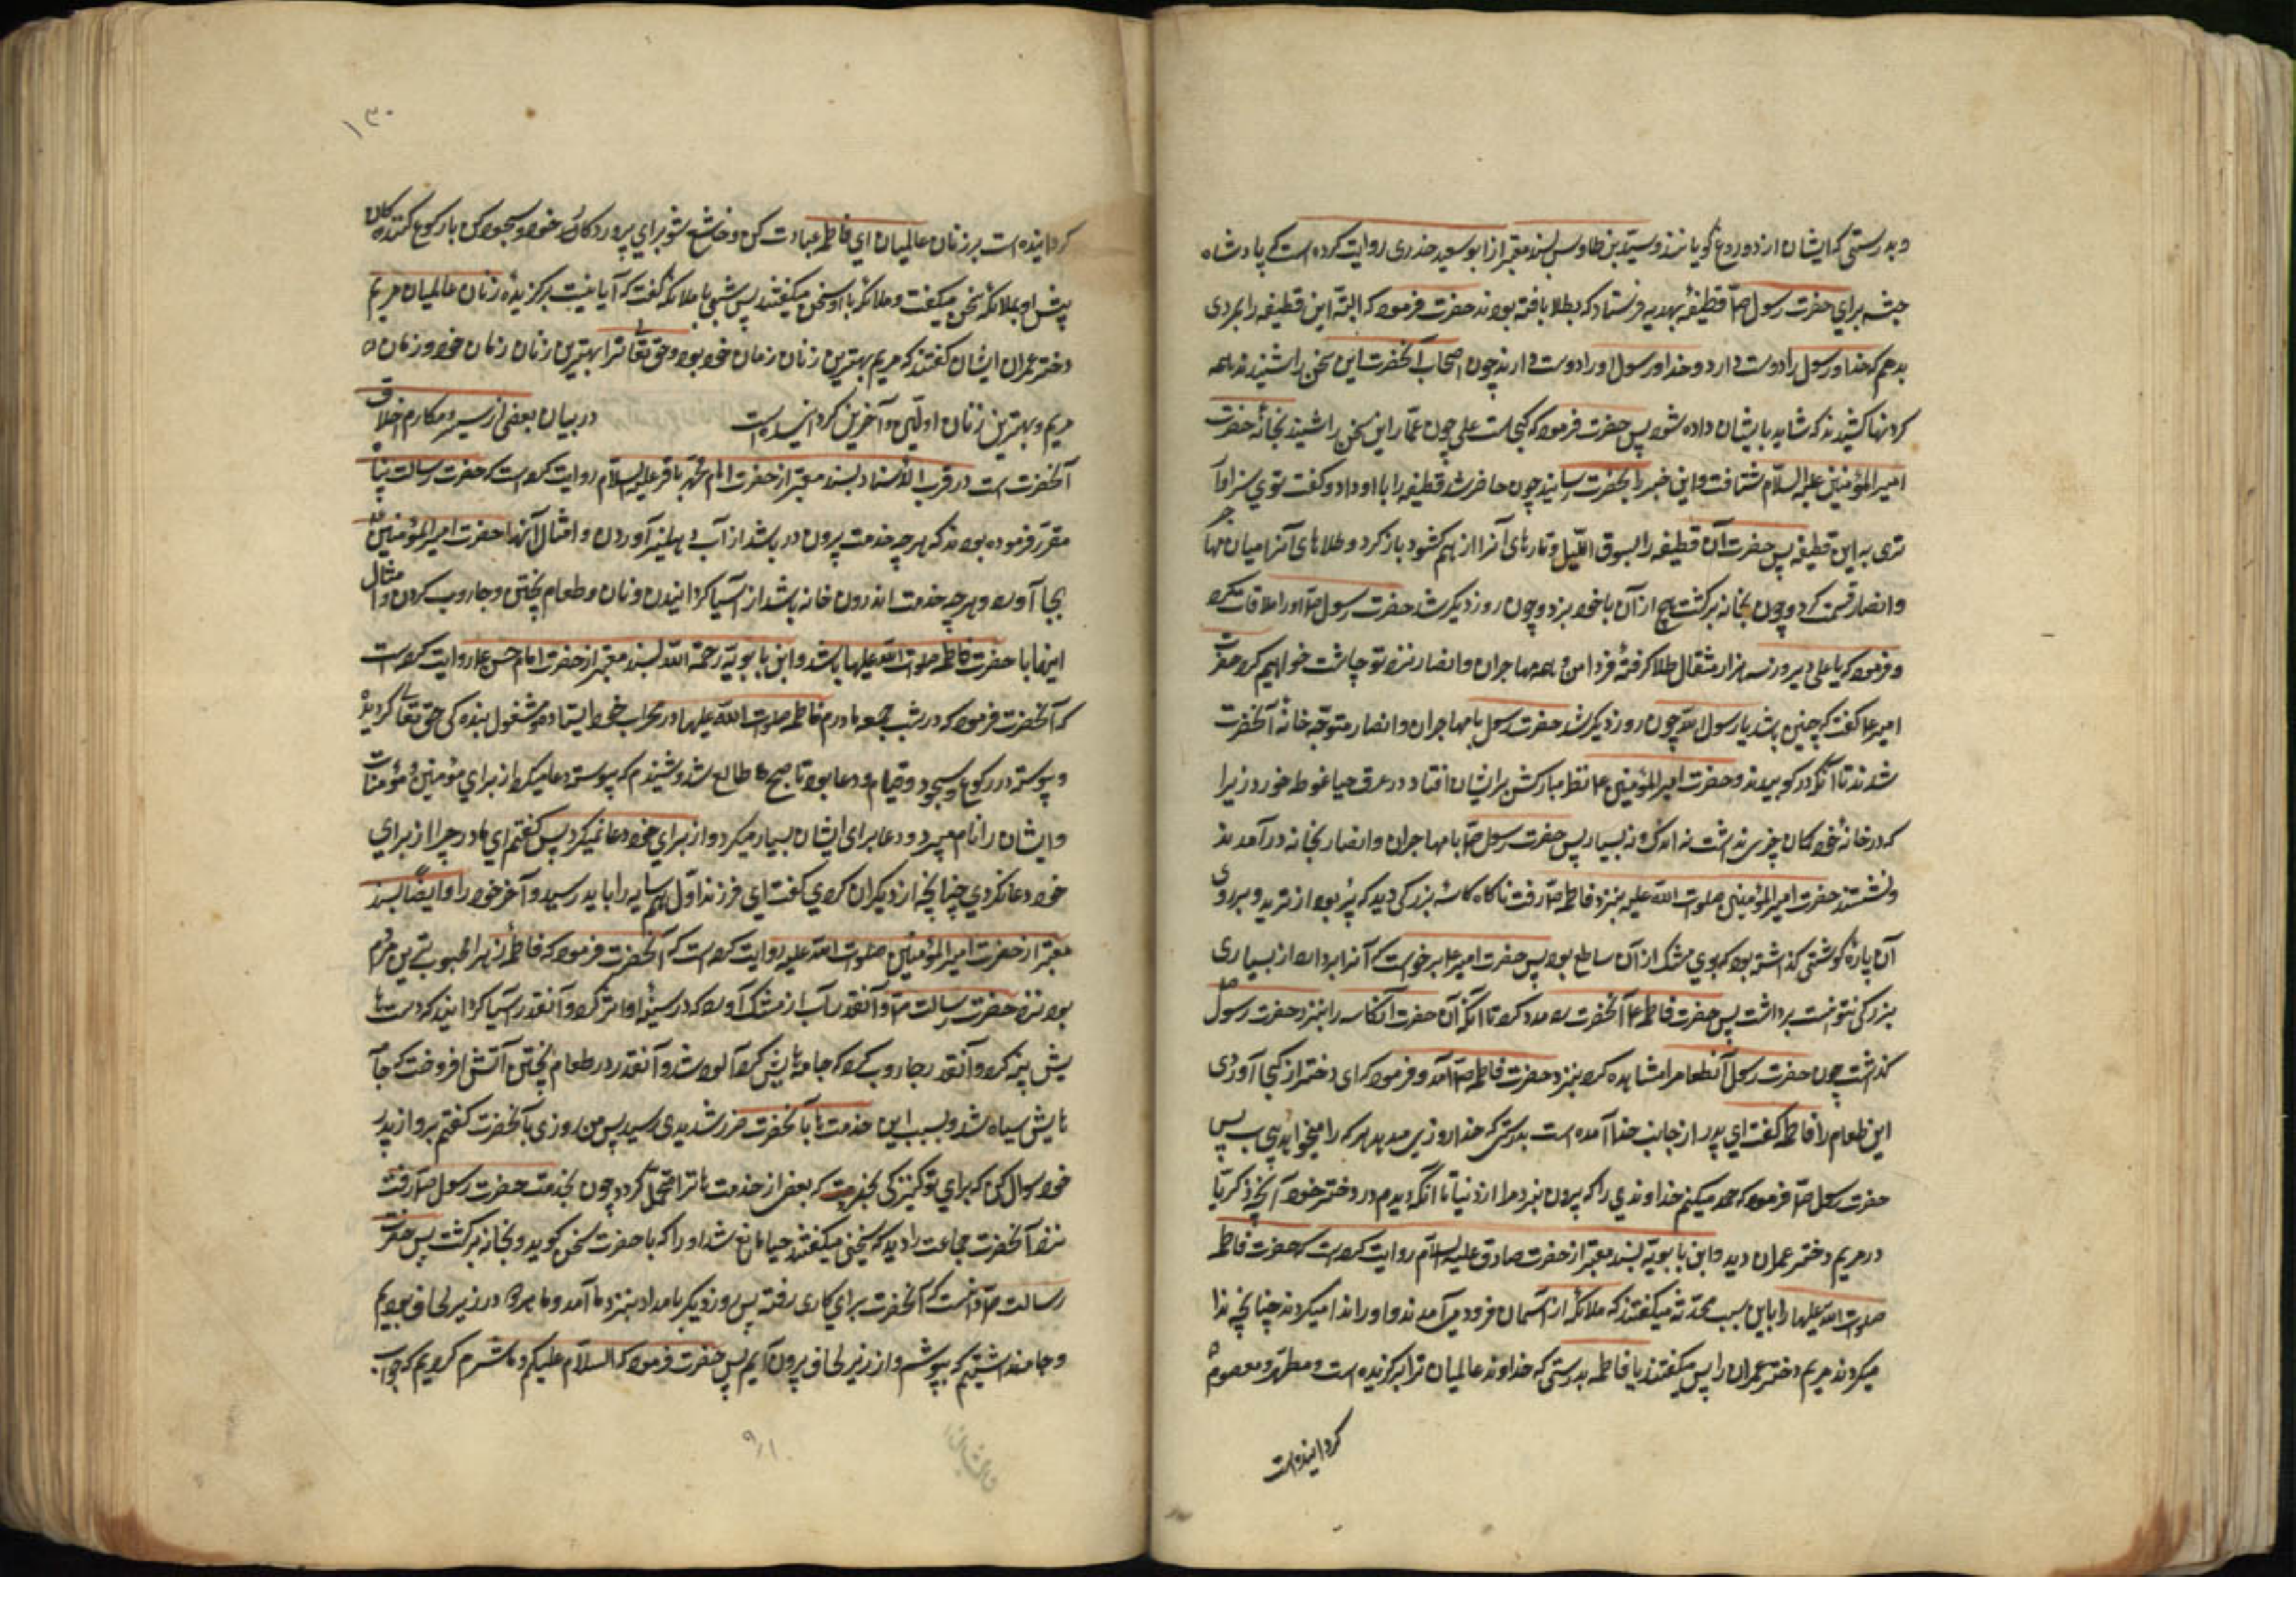 وبدرستی که ایشان از دوروغ گویانند وسید بن طاوس بسند معتبر از ابو سعید خدری روایت کرده است که پادشاه
حبشه برای حضرت رسول ص قطیفهٔ بهدیه فرستاد که بطلا بافته بودند حضرت فرمود که البته این قطیفه را بمردی
بدهم که خدا و رسول را دوست دارد و خدا و رسول او را دوست دارند چون اصحاب آنحضرت این سخن را شنیدند همه
کردنها کشیدند که شاید بایشان داده شود پس حضرت فرمود که کجاست علی چون عمار این سخن را شنید بخانهٔ حضرت
امیرالمؤمنین علیه السلام شتافت و این خبر را بآنحضرت رسانید چون حاضر شد قطیفه را باو داد و گفت توی سزاوار
تری به این قطیفه پس حضرت آن قطیفه را بسوق اللیل و تارهای آنرا از هم کشود باز کرد و طلاهای آنرا میان مهاجر
و انصار قسمت کرد و چون بخانه برگشت هیچ از آن با خود نبرد و چون روز دیگر شد حضرت رسول ص او را ملاقات کرد
و فرمود که یا علی دیروز سه هزار مثقال طلا گرفتهٔ فردا من و همه مهاجران و انصار نزد تو چاشت خواهیم کرد حضرت
امیر ع گفت که چنین باشد یا رسول الله چون روز دیگر شد حضرت رسول با مهاجران و انصار متوجه خانهٔ آنحضرت
شدند تا آنکه در کوبیدند و حضرت امیرالمؤمنین ع نظر مبارکش بر ایشان افتاد و در عرق حیا غوطه خورد زیرا
که در خانهٔ خود کمان چیزی نداشت نه اندک و نه بسیار پس حضرت رسول ص با مهاجران و انصار بخانه در آمدند
و نشستند حضرت امیرالمؤمنین صلوت الله علیه بنزد فاطمه ص رفت ناکاه کاسهٔ بزرگی دید که پر بود از ترید و بر روی
آن پارهٔ گوشتی گذاشته بود که بوی مشک از آن ساطع بود پس حضرت امیر ع برخواست که آنرا بردارد از بسیاری
بزرکی نتوانست برداشت پس حضرت فاطمه ع آنحضرت را مدد کرد تا آنکه آن حضرت آن کاسه را بنزد حضرت رسول ص
گذاشت چون حضرت رسول آن طعام را مشاهده کرد بنزد حضرت فاطمه ص آمد و فرمود که ای دختر از کجا آوردی
این طعام را فاطمه گفت ای پدر از جانب خدا آمده است بدرستی که خدا روزی میدهد هر که را میخواهد بی حساب پس
حضرت رسول ص فرمود که حمد میکنم خداوندی را که بیرون نبرد مرا از دنیا تا آنکه دیدم در دختر خود آنچه زکریا
در مریم دختر عمران دید و ابن بابویه بسند معتبر از حضرت صادق علیه السلام روایت کرده است که حضرت فاطمه
صلوت الله علیها را باین سبب محدثه میکفتند که ملائکه از آسمان فرود می آمدند و او را ندا میکردند چنانچه ندا
میکردند مریم دختر عمران را پس میکفتند یا فاطمه بدرستی که خداوند عالمیان ترا برگزیده است و مطهر و معصومه
کردانیده است
۱۳۰
کردانیده است بر زنان عالمیان ای فاطمه عبادت کن و خاشع شو برای پروردگار خود و سجود کن با رکوع کنندگان
پیش او بملائکه سخن میکفت و ملائکه با او سخن میکفتند پس شبی با ملائکه گفت که آیا نیست برگزیدهٔ زنان عالمیان مریم
دختر عمران ایشان گفتند که مریم بهترین زنان زمان خود بود و حق تعالی ترا بهترین زنان زمان خود و زمان
مریم و بهترین زنان اولین و آخرین کردانیده است در بیان بعضی از سیر و مکارم اخلاق
آنحضرت است در قرب الاسناد بسند معتبر از حضرت امام محمد باقر علیه السلام روایت کرده است که حضرت رسالت پناه
مقرر فرموده بودند که هر چه خدمت بیرون در باشد از آب و هیمه آوردن و امثال آنها حضرت امیرالمؤمنین
بجا آورد و هر چه خدمت اندرون خانه باشد از آسیا کردانیدن و نان و طعام پختن و جاروب کردن و امثال
اینها با حضرت فاطمه صلوت الله علیها باشد و ابن بابویه رحمة الله بسند معتبر از حضرت امام حسن ع روایت کرده است
که آنحضرت فرمود که در شب جمعه مادرم فاطمه صلوت الله علیها در محراب خود ایستاد و مشغول بندگی حق تعالی گردید
و پیوسته در رکوع و سجود و قیام و دعا بود تا صبح طالع شد و شنیدم که پیوسته دعا میکرد از برای مؤمنین و مؤمنات
و ایشان را نام میبرد و دعا برای ایشان بسیار میکرد و از برای خود دعا نمیکرد پس گفتم ای مادر چرا از برای
خود دعا نکردی چنانچه از دیگران کردی گفت ای فرزند اول همسایه را باید رسید و آخر خود را و ایضا بسند
معتبر از حضرت امیرالمؤمنین صلوت الله علیه روایت کرده است که آنحضرت فرمود که فاطمه زهرا محبوب ترین مردم
بود نزد حضرت رسالت ص و آنقدر آب از مشک آورد که در سینهٔ او اثر کرد و آنقدر آسیا کردانید که دستها
یش پینه کرد و آنقدر جاروب کرد که جامه هایش گرد آلود شد و آنقدر در طعام پختن آتش افروخت که جامه
هایش سیاه شد و بسبب این خدمت ها بآنحضرت ضرر شدیدی رسید پس من روزی بآنحضرت گفتم برو از پدر
خود سوال کن که برای تو کنیزکی بخرد که بعضی از خدمت ها ترا متحمل گردد چون بخدمت حضرت رسول ص رفت
نزد آنحضرت جماعت را دید که سخنی میکفتند حیا مانع شد او را که با حضرت سخن گوید و بخانه برگشت پس حضرت
رسالت ص دانست که آنحضرت برای کاری رفته پس روز دیگر بامداد بنزد ما آمد و ما در زیر لحاف بودیم
و جامه نداشتیم که بپوشیم و از زیر لحاف بیرون آییم پس حضرت فرمود که السلام علیکم و ما شرم کردیم که جواب